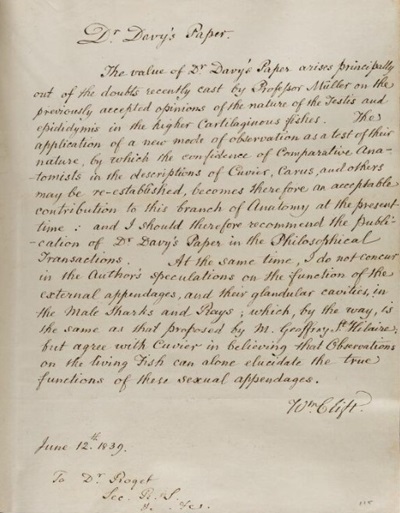 Dr Davy's Paper.
The value of Dr Davy's Paper arises principally
out of the doubts recently cast by Professor Müller on the
previously accepted opinions of the nature of the Testis and
epididymis in the higher Cartilaginous fishes. The
application of a new mode of observation as a test of their
nature, by which the confidence of Comparative Ana-
-tomists in the descriptions of Cuvier, Carus, and others
may be re-established, becomes therefore an acceptable
contribution to this branch of Anatomy at the present
time: and I should therefore recommend the publi-
-cation of Dr Davy's Paper in the Philosophical
Transactions. At the same time, I do not concur
in the Author's speculations on the function of the
external appendages, and their glandular cavities, in
the Male Sharks and Rays; which, by the way, is
the same as that proposed by M. Geoffroy St Hilaire;
but agree with Cuvier in believing that Observations
on the living Fish can alone elucidate the true
functions of these sexual appendages.
Wm Clift.
June 12th 1839.
To Dr Roget
Sec. R.S.